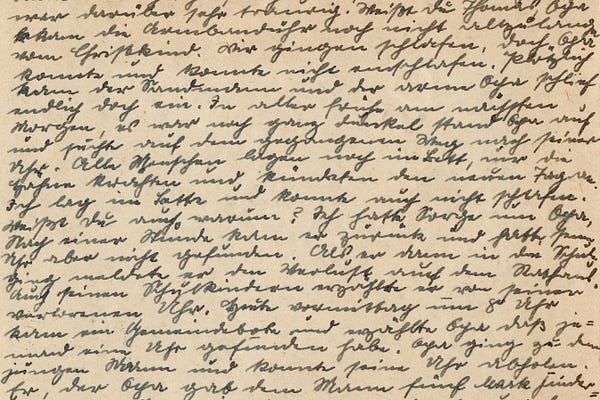 war darüber sehr traurig. Weißt du Thomas, Opa
bekam die Armbanduhr noch nicht allzulange
vom Christkind. Wir gingen schlafen, doch Opa
konnte und konnte nicht einschlafen. Plötzlich
kam der Sandmann und der arme Opa schlief
endlich doch ein. In aller Frühe am nächsten
Morgen, es war noch ganz dunkel stand Opa auf
und suchte auf dem gegangenen Weg nach seiner
Uhr. Alle Menschen lagen noch im Bett, nur die
Hähne krähten und kündeten den neuen Tag an.
Ich lag im Bette und konnte auch nicht schlafen.
Weißt du auch warum? Ich hatte Sorge um Opa.
Nach einer Stunde kam er zurück und hatte seine
Uhr aber nicht gefunden. Als er dann in die Schule
ging meldete er den Verlust auch dem Rathaus.
Auch seinen Schulkindern erzählte er von seiner
verlorenen Uhr. Heute vormittag um 8 Uhr
kam ein Gemeindebote und erzählte Opa daß je-
mand eine Uhr gefunden habe. Opa ging zu dem
jungen Mann und konnte seine Uhr abholen.
Er, der Opa gab dem Mann fünf Mark Finder-